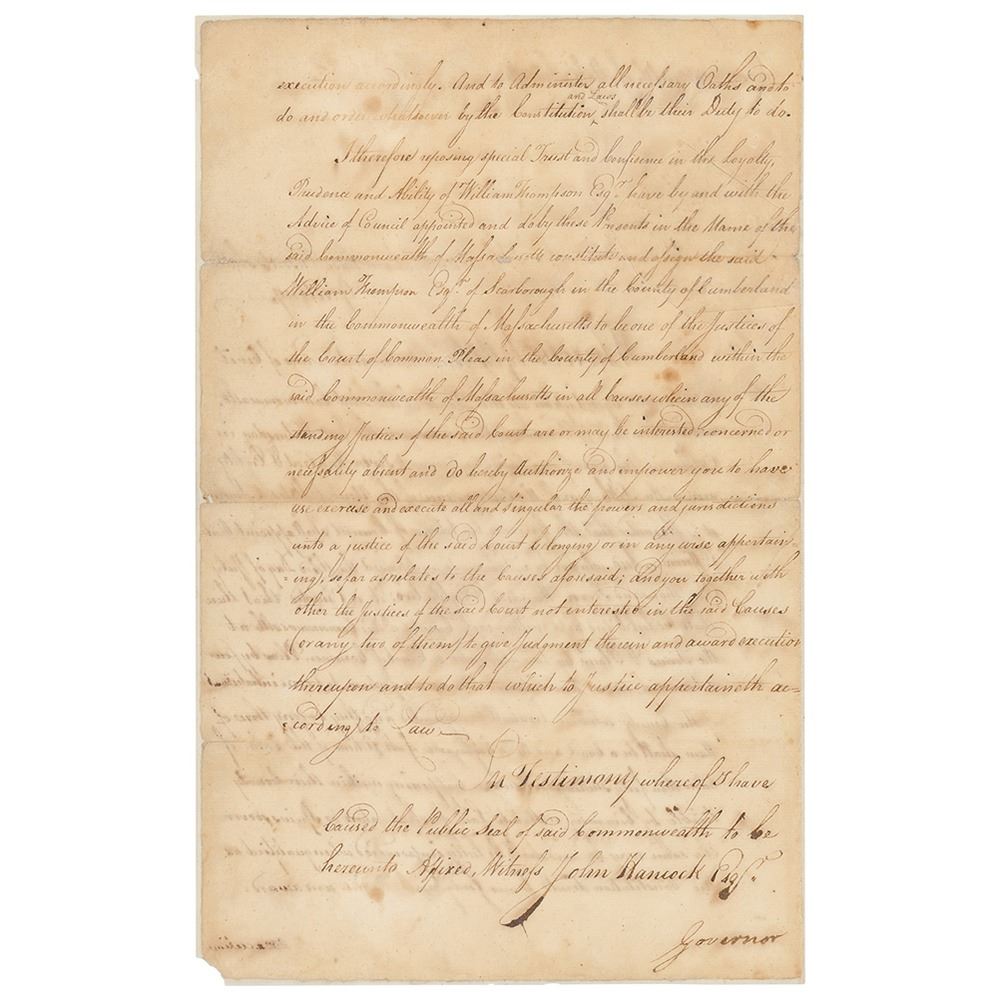 execution accordingly. And to Administer all necessary Oaths and to
and Laws
do and order whatsoever by the Constitution ‸ shall be their Duty to do.
I therefore reposing special Trust and Confidence in the Loyalty,
Prudence and Ability of William Thompson Esqr. have by and with the
Advice of Council appointed and do by these Presents in the Name of the
said Commonwealth of Massachusetts constitute and assign the said
William Thompson Esqr. of Scarborough in the County of Cumberland
in the Commonwealth of Massachusetts to be one of the Justices of
the Court of Common Pleas in the County of Cumberland within the
said Commonwealth of Massachusetts in all Causes wherein any of the
standing Justices of the said Court are or may be interested, concerned or
necessarily absent and do hereby Authorize and impower you to have
use exercise and execute all and singular the powers and jurisdictions
unto a justice of the said Court belonging or in any wise appertain-
:ing, so far as relates to the Causes aforesaid; and you together with
other the Justices of the said Court not interested in the said Causes
(or any two of them) to give Judgment therein and award execution
thereupon and to do that which to Justice appertaineth ac=
:cording to Law
In Testimony whereof I have
Caused the Public Seal of said Commonwealth to be
hereunto Afixed, Witness John Hancock Esqr.
Governor